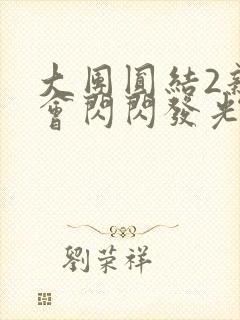 大團圓結2新
會閃閃發光
劉荣祥